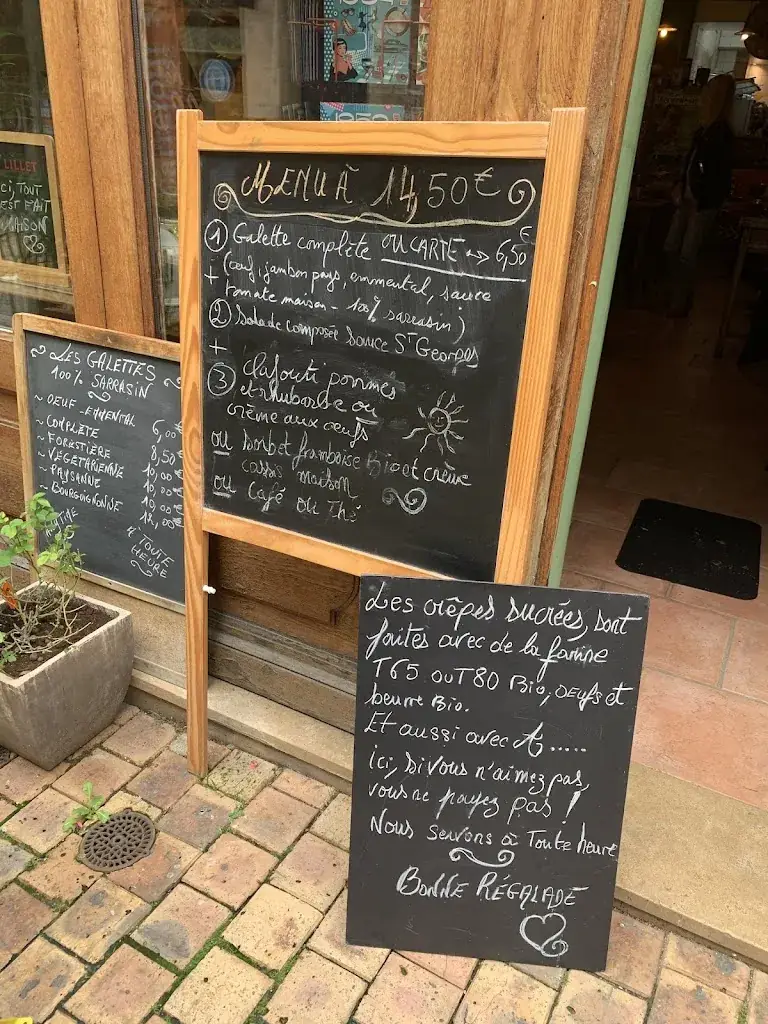 LILLET
ici, TOUT
EST FAIT
MAISON
MENU À 14,50€
① Galette complète OU CARTE → 6,50€
(oeuf, jambon pays, emmental, sauce
tomate maison - 100% sarrasin)
+
② Salade composée sauce St Georges
+
③ clafouti pommes
et rhubarbe ou
crème aux oeufs
ou sorbet framboise Bio et crème
cassis maison
ou café ou Thé
LES GALETTES
100% SARRASIN
~ OEUF - EMMENTAL 6,00
~ COMPLÈTE 8,50€
~ FORESTIÈRE 10,00€
~ VEGETARIENNE 10,00€
~ PAYSANNE 10,00€
~ BOURGUIGNONNE 12,00€
À TOUTE
HEURE
Les crêpes sucrées, sont
faites avec de la farine
T65 ou T80 Bio, oeufs et
beurre Bio.
Et aussi avec A.....
ici, si vous n'aimez pas,
vous ne payez pas !
Nous servons à Toute heure
BONNE RÉGALADE